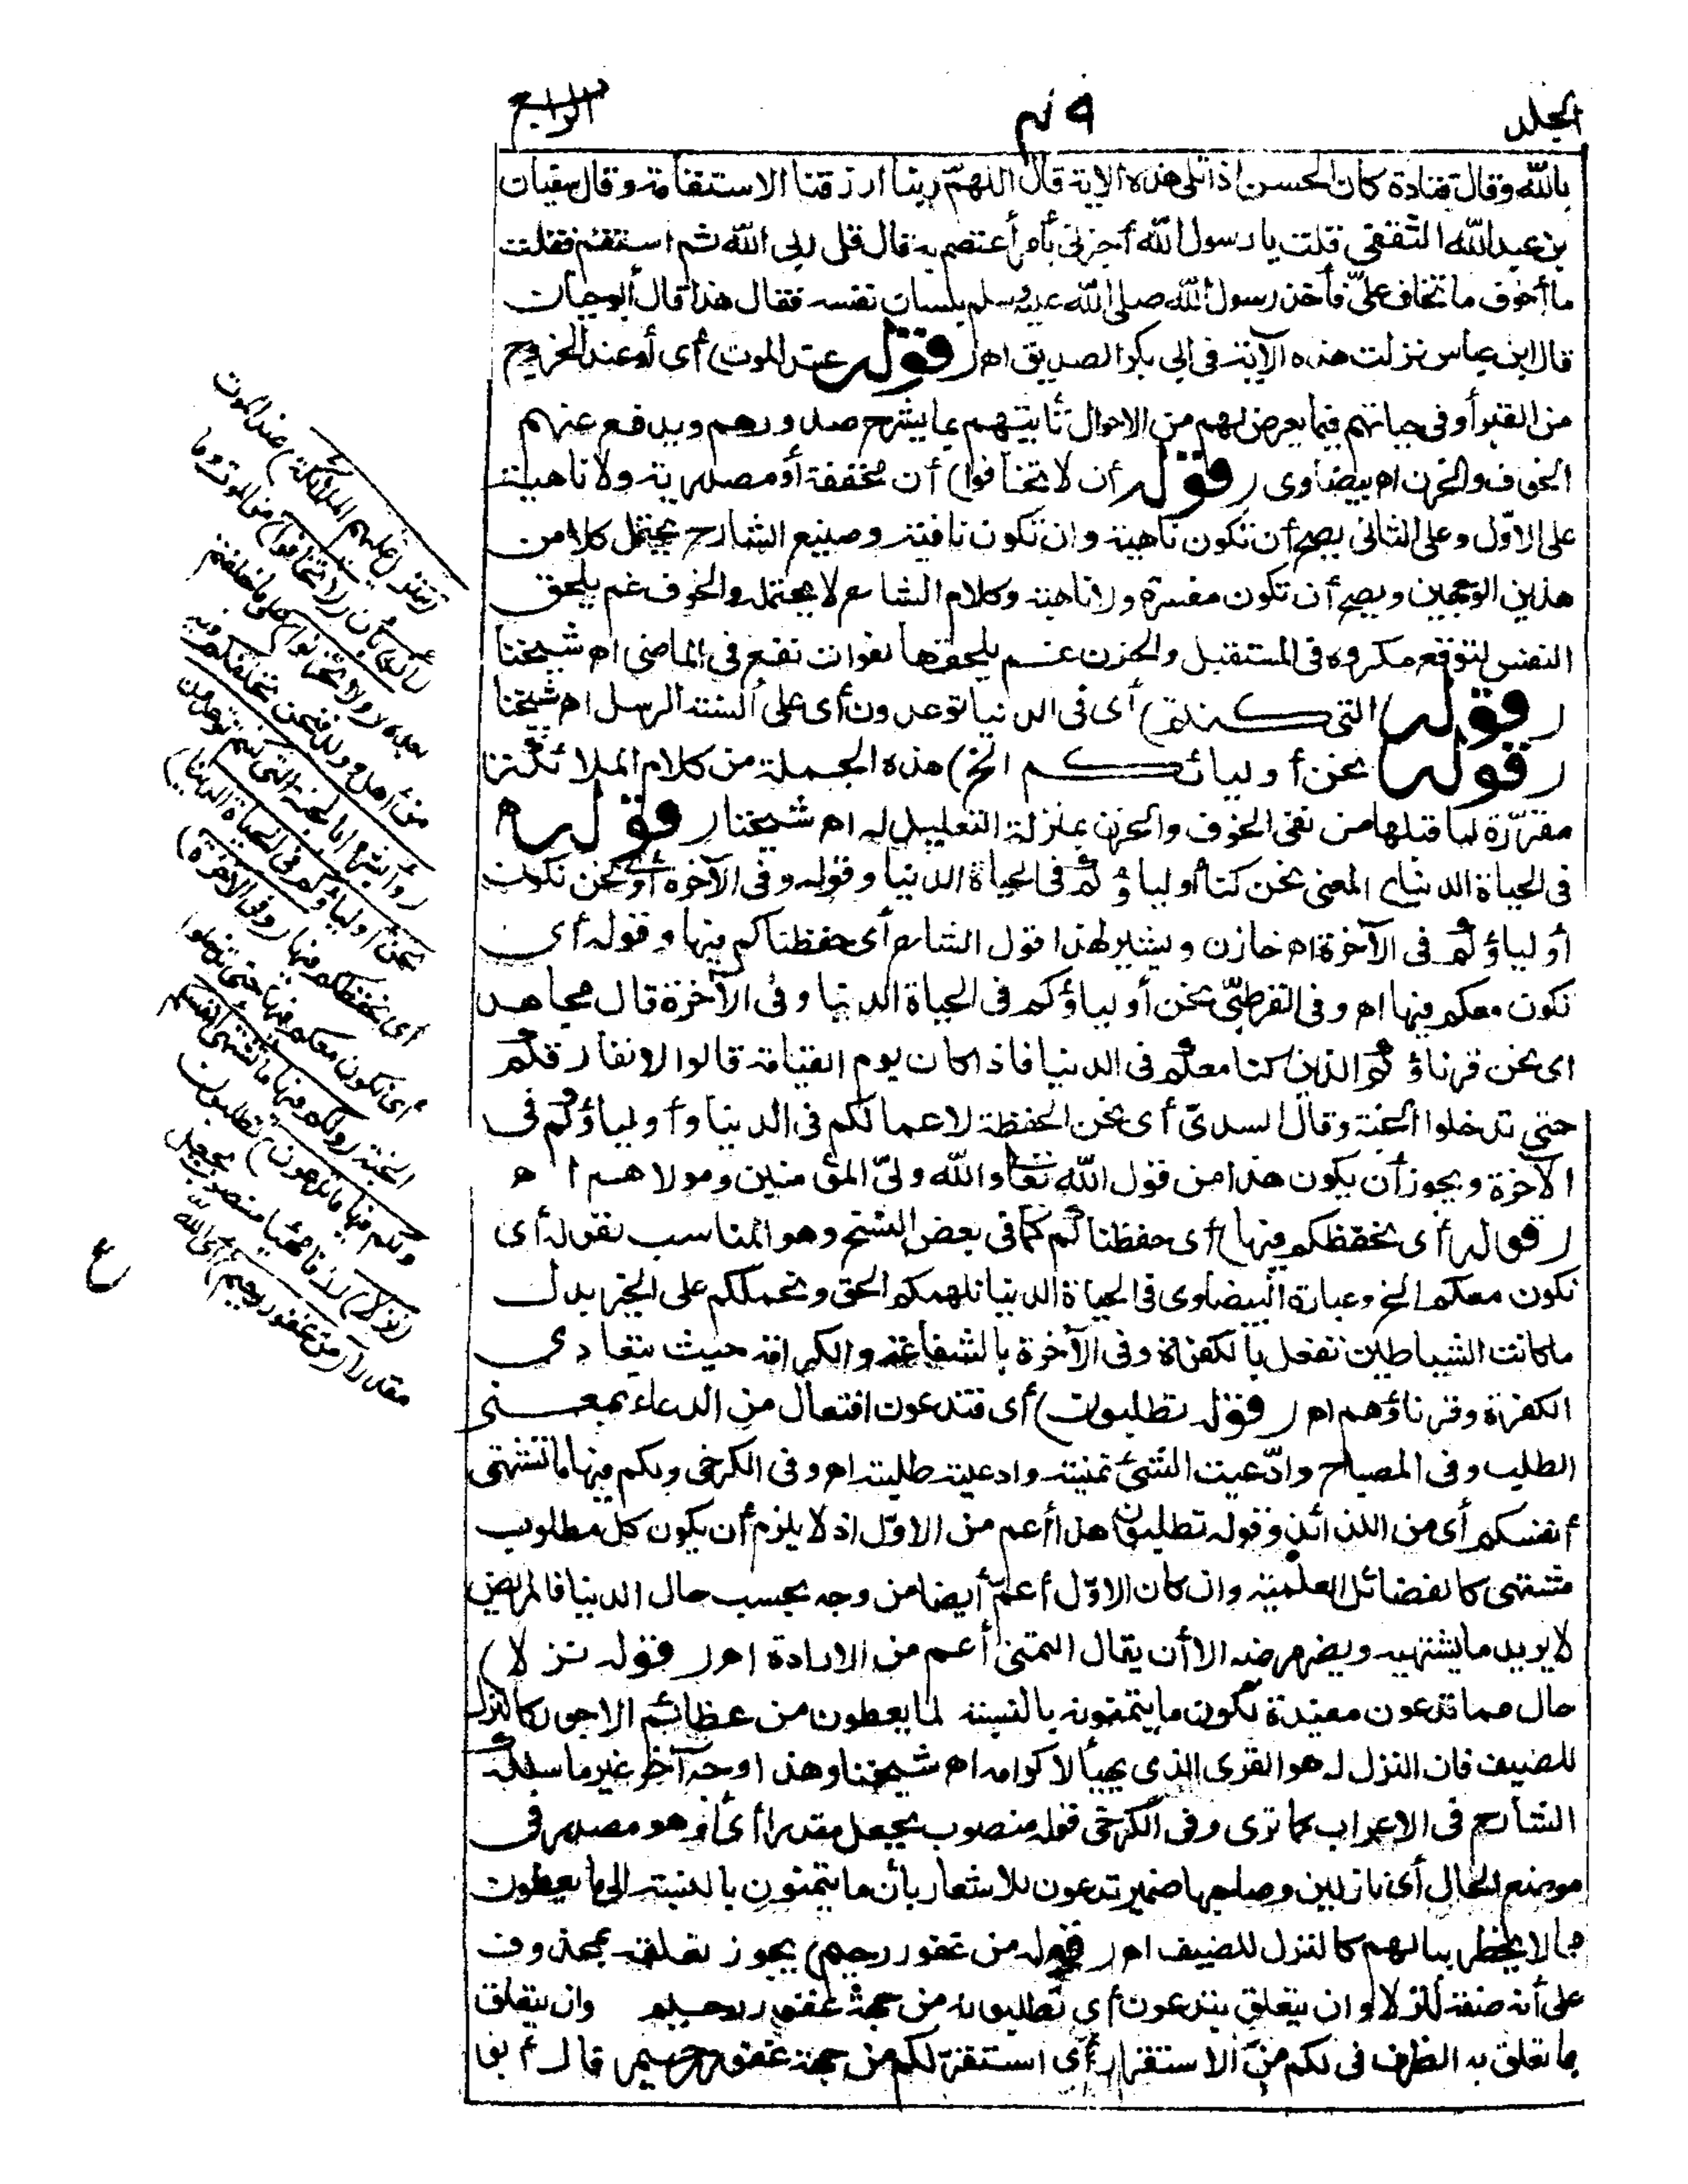 الجلد
الرابع
بالله وقال قتادة كان الحسن اذا تلى هذه الاية قال اللهم ربنا ارزقنا الاستقامة وقال سفيان
بن عبد الله الثقفي قلت يا رسول الله أخبرني بأمر أعتصم به قال قل ربي الله ثم استقم فقلت
ما أخوف ما تخاف علىّ فأخذ رسول الله صلى الله عليه وسلم بلسان نفسه فقال هذا قال أبو حيان
قال ابن عباس نزلت هذه الآية في ابي بكر الصديق اه (قوله عند الموت) أى أو عند الخروج
من القبر أو في حياتهم فيما يعرض لهم من الاحوال تأتيهم بما يشرح صدورهم ويدفع عنهم
الخوف والحزن اه بيضاوى (قوله أن لا تخافوا) أن مخففة أو مصدرية ولا ناهية
على الاوّل وعلى الثانى يصح أن تكون ناهية وان تكون نافية وصنيع الشارح يحتمل كلا من
هذين الوجهين ويصح أن تكون مفسرة ولا ناهية وكلام الشارح لا يحتمله والخوف غم يلحق
النفس لتوقع مكروه في المستقبل والحزن غم يلحقها لفوات نفع في الماضى اه شيخنا
(قوله التى كنتم) أى في الدنيا توعدون أى على ألسنة الرسل اه شيخنا
(قوله نحن أولياؤكم الخ) هذه الجملة من كلام الملائكة
مقرّرة لما قبلها من نفى الخوف والحزن بمنزلة التعليل له اه شيخنا (قوله
في الحياة الدنيا) المعنى نحن كنا أولياؤكم في الحياة الدنيا وقوله وفى الآخرة أى ونحن نكون
أولياؤكم في الآخرة اه خازن ويشير لهذا قول الشارح أى حفظناكم فيها وقوله أى
نكون معكم فيها اه وفى القرطبىّ نحن أولياؤكم في الحياة الدنيا وفى الآخرة قال مجاهد
اى نحن قرناؤكم الذين كنا معكم في الدنيا فاذا كان يوم القيامة قالوا لا نفارقكم
حتى تدخلوا الجنة وقال السدىّ أى نحن الحفظة لاعمالكم في الدنيا وأولياؤكم في
الآخرة ويجوز أن يكون هذا من قول الله تعا والله ولىّ المؤمنين ومولاهم ا ه
(قوله أى نحفظكم فيها) أى حفظناكم كما في بعض النسخ وهو المناسب لقوله أى
نكون معكم الخ وعبارة البيضاوى في الحياة الدنيا نلهمكم الحق ونحملكم على الخير بدل
ما كانت الشياطين تفعل بالكفرة وفى الآخرة بالشفاعة والكرامة حيث يتعادى
الكفرة وقرناؤهم اه (قوله تطلبون) أى فتدعون افتعال من الدعاء بمعنى
الطلب وفى المصباح وادّعيت الشئ تمنيته وادعيته طلبته اه وفى الكرخى ولكم فيها ما تشتهى
أنفسكم أى من اللذائذ وقوله تطلبون هذا أعم من الاوّل اذ لا يلزم أن يكون كل مطلوب
مشتهى كالفضائل العلمية وان كان الاوّل أعمّ أيضا من وجه بحسب حال الدنيا فالمريض
لا يريد ما يشتهيه ويضر مرضه الا أن يقال التمنى أعم من الارادة اه (قوله نزلا)
حال مما تدعون مفيدة لكون ما يتمنونه بالنسبة لما يعطون من عظائم الاجور كالنزل
للضيف فان النزل له هو القرى الذى يهيأ لاكرامه اه شيخنا وهذا وجه آخر غير ما سلكه
الشارح في الاعراب كما ترى وفى الكرخى قوله منصوب بجعل مقدرا أى أو هو مصدر في
موضع الحال أى نازلين وصاحبها ضمير تدعون للاشعار بأن ما يتمنون بالنسبة الى ما يعطون
مما لا يخطر ببالهم كالنزل للضيف اه (قوله من غفور رحيم) يجوز تعلقه بمحذوف
على أنه صفة لنزلا وان يتعلق بتدعون أى تطلبونه من جهة غفور رحيم وان يتعلق
بما تعلق به الظرف في لكم من الاستقرار أى استقرّ لكم من جهة غفور رحيم قال أبو
(تتنزل عليهم الملائكة) عند الموت
(أن) بأن (لا تخافوا) من الموت وما
بعده (ولا تحزنوا) على ما خلفتم
من أهل وولد فنحن نخلفكم فيه
(وأبشروا بالجنة التى كنتم توعدون
نحن أولياؤكم في الحياة الدنيا)
أى نحفظكم فيها (وفى الآخرة)
أى نكون معكم فيها حتى تدخلوا
الجنة (ولكم فيها ما تشتهى أنفسكم
ولكم فيها ما تدعون) تطلبون
(نزلا) رزقا مهيأ منصوب بجعل
مقدرا (من غفور رحيم) أى الله
ع